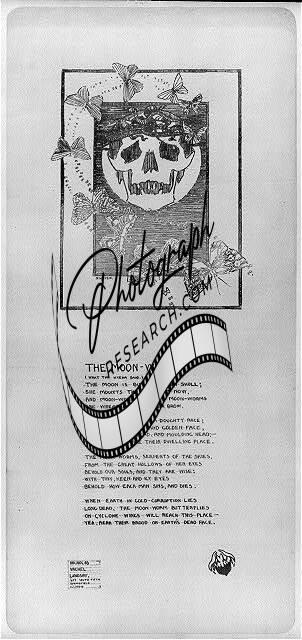 Photograph
RESEARCH.COM
THE MOON-W
THE MOON IS BU SKULL,
SHE MOUNTS T
AND MOON-WO MOON-WORMS
DOUGHTY RACE;
AND GOLDEN FACE,
AND MOULDING HEAD;—
THEIR DWELLING PLACE.
THE WORMS, SERPENTS OF THE SKIES,
FROM THE GREAT HOLLOWS OF HER EYES
BEHOLD OUR SOULS, AND THEY ARE WISE:
WITH TINY, KEEN AND ICY EYES
BEHOLD HOW EACH MAN SINS, AND DIES.
WHEN EARTH IN GOLD-CORRUPTION LIES
LONG DEAD, THE MOON-WORM BUTTERFLIES
ON CYCLONE WINGS WILL REACH THIS PLACE—
YEA, REAR THEIR BROOD ON EARTH'S DEAD FACE.
NICHOLAS
VACHEL
LINDSAY,
SPRINGFIELD